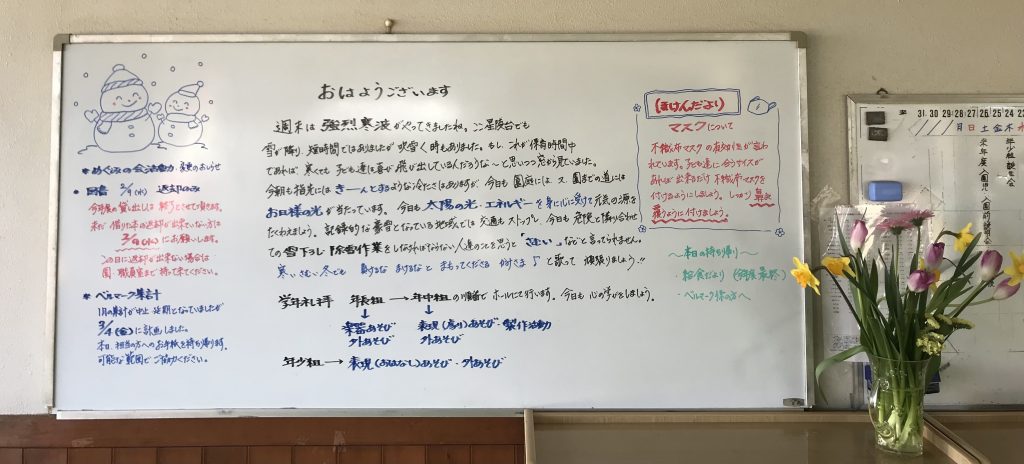 おはようございます
週末は強烈寒波がやってきましたね。ここ星陵台でも
雪が降り、短時間ではありましたが吹雪く時もありました。もし、これが保育時間中
であれば、寒くても子ども達は喜び飛び出しているんだろうな〜と思いつつ窓から見ていました。
今朝も指先には きーんとするような冷たさはありますが、今日も園庭には、又、園までの道には
お日様の光が当たっています。今日も太陽の光・エネルギーを身に心に受けて元気の源を
たくわえましょう。記録的な蓄雪となっている地域では交通もストップし、今日も危険と隣り合わせ
での雪下ろし・除雪作業をしなければならない人達のことを思うと「さむい」などと言ってられません。
寒い さむい 冬でも 負けるな まけるなと まもってくださる 神さま♪ と歌って 頑張りましょう!!
学年礼拝 年長組→年中組の順番でホールにて行います。今日も心の学びをしましょう。
↓ ↓
楽器あそび 表現(鬼り)あそび・製作活動
外あそび 外あそび
年少組→表現(おはなし)あそび・外あそび
* めぐみの会活動 変更のおしらせ
* 図書 2/9(水) 返却のみ
今年度の貸し出しは終りとさせて頂きます。
未だ借りた本の返却が出来ていない方は
2/9(水)にお願いします。
この日に返却が出来ない場合は
園・職員室まで持って来てください。
* ベルマーク集計
1月の集計が中止・延期となっていましたが
3/4(金)に計画しました。
本日、担当の方へのお手紙を持ち帰ります。
可能な範囲でご協力ください。
(ほけんだより)
マスクについて
不織布マスクの有効性が言わ
れています。子ども達に合うサイズが
あれば出来るだけ不織布マスクを
付けるようにしましょう。しっかり鼻まで
覆うように付けましょう。
〜本日の持ち帰り〜
・給食だより(今年度最終)
・ベルマーク係の方へ
31 30 29 28 27 26 25 24
月 日 土 金 木 水